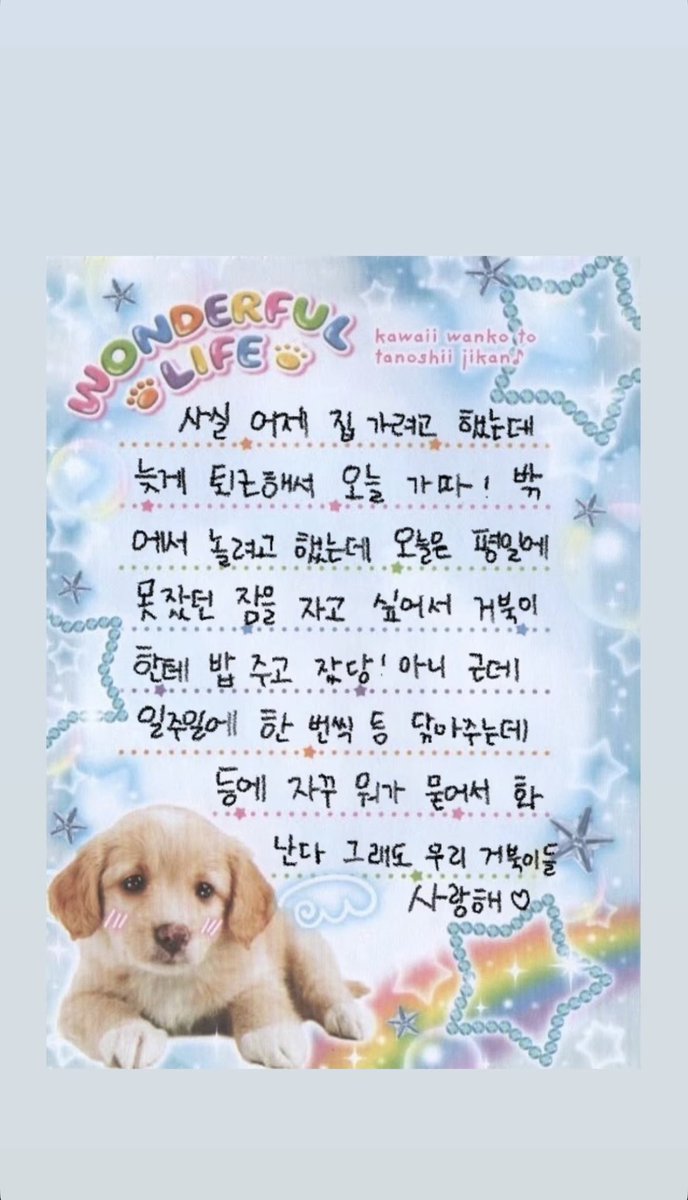 WONDERFUL
LIFE
kawaii wanko to
tanoshii jikan♪
사실 어제 집 가려고 했는데
늦게 퇴근해서 오늘 가따! 밖
에서 놀려고 했는데 오늘은 평일에
못 잤던 잠을 자고 싶어서 거북이
한테 밥 주고 잤당! 아니 근데
일주일에 한 번씩 등 닦아주는데
등에 자꾸 뭐가 묻어서 화
난다 그래도 우리 거북이들
사랑해♡